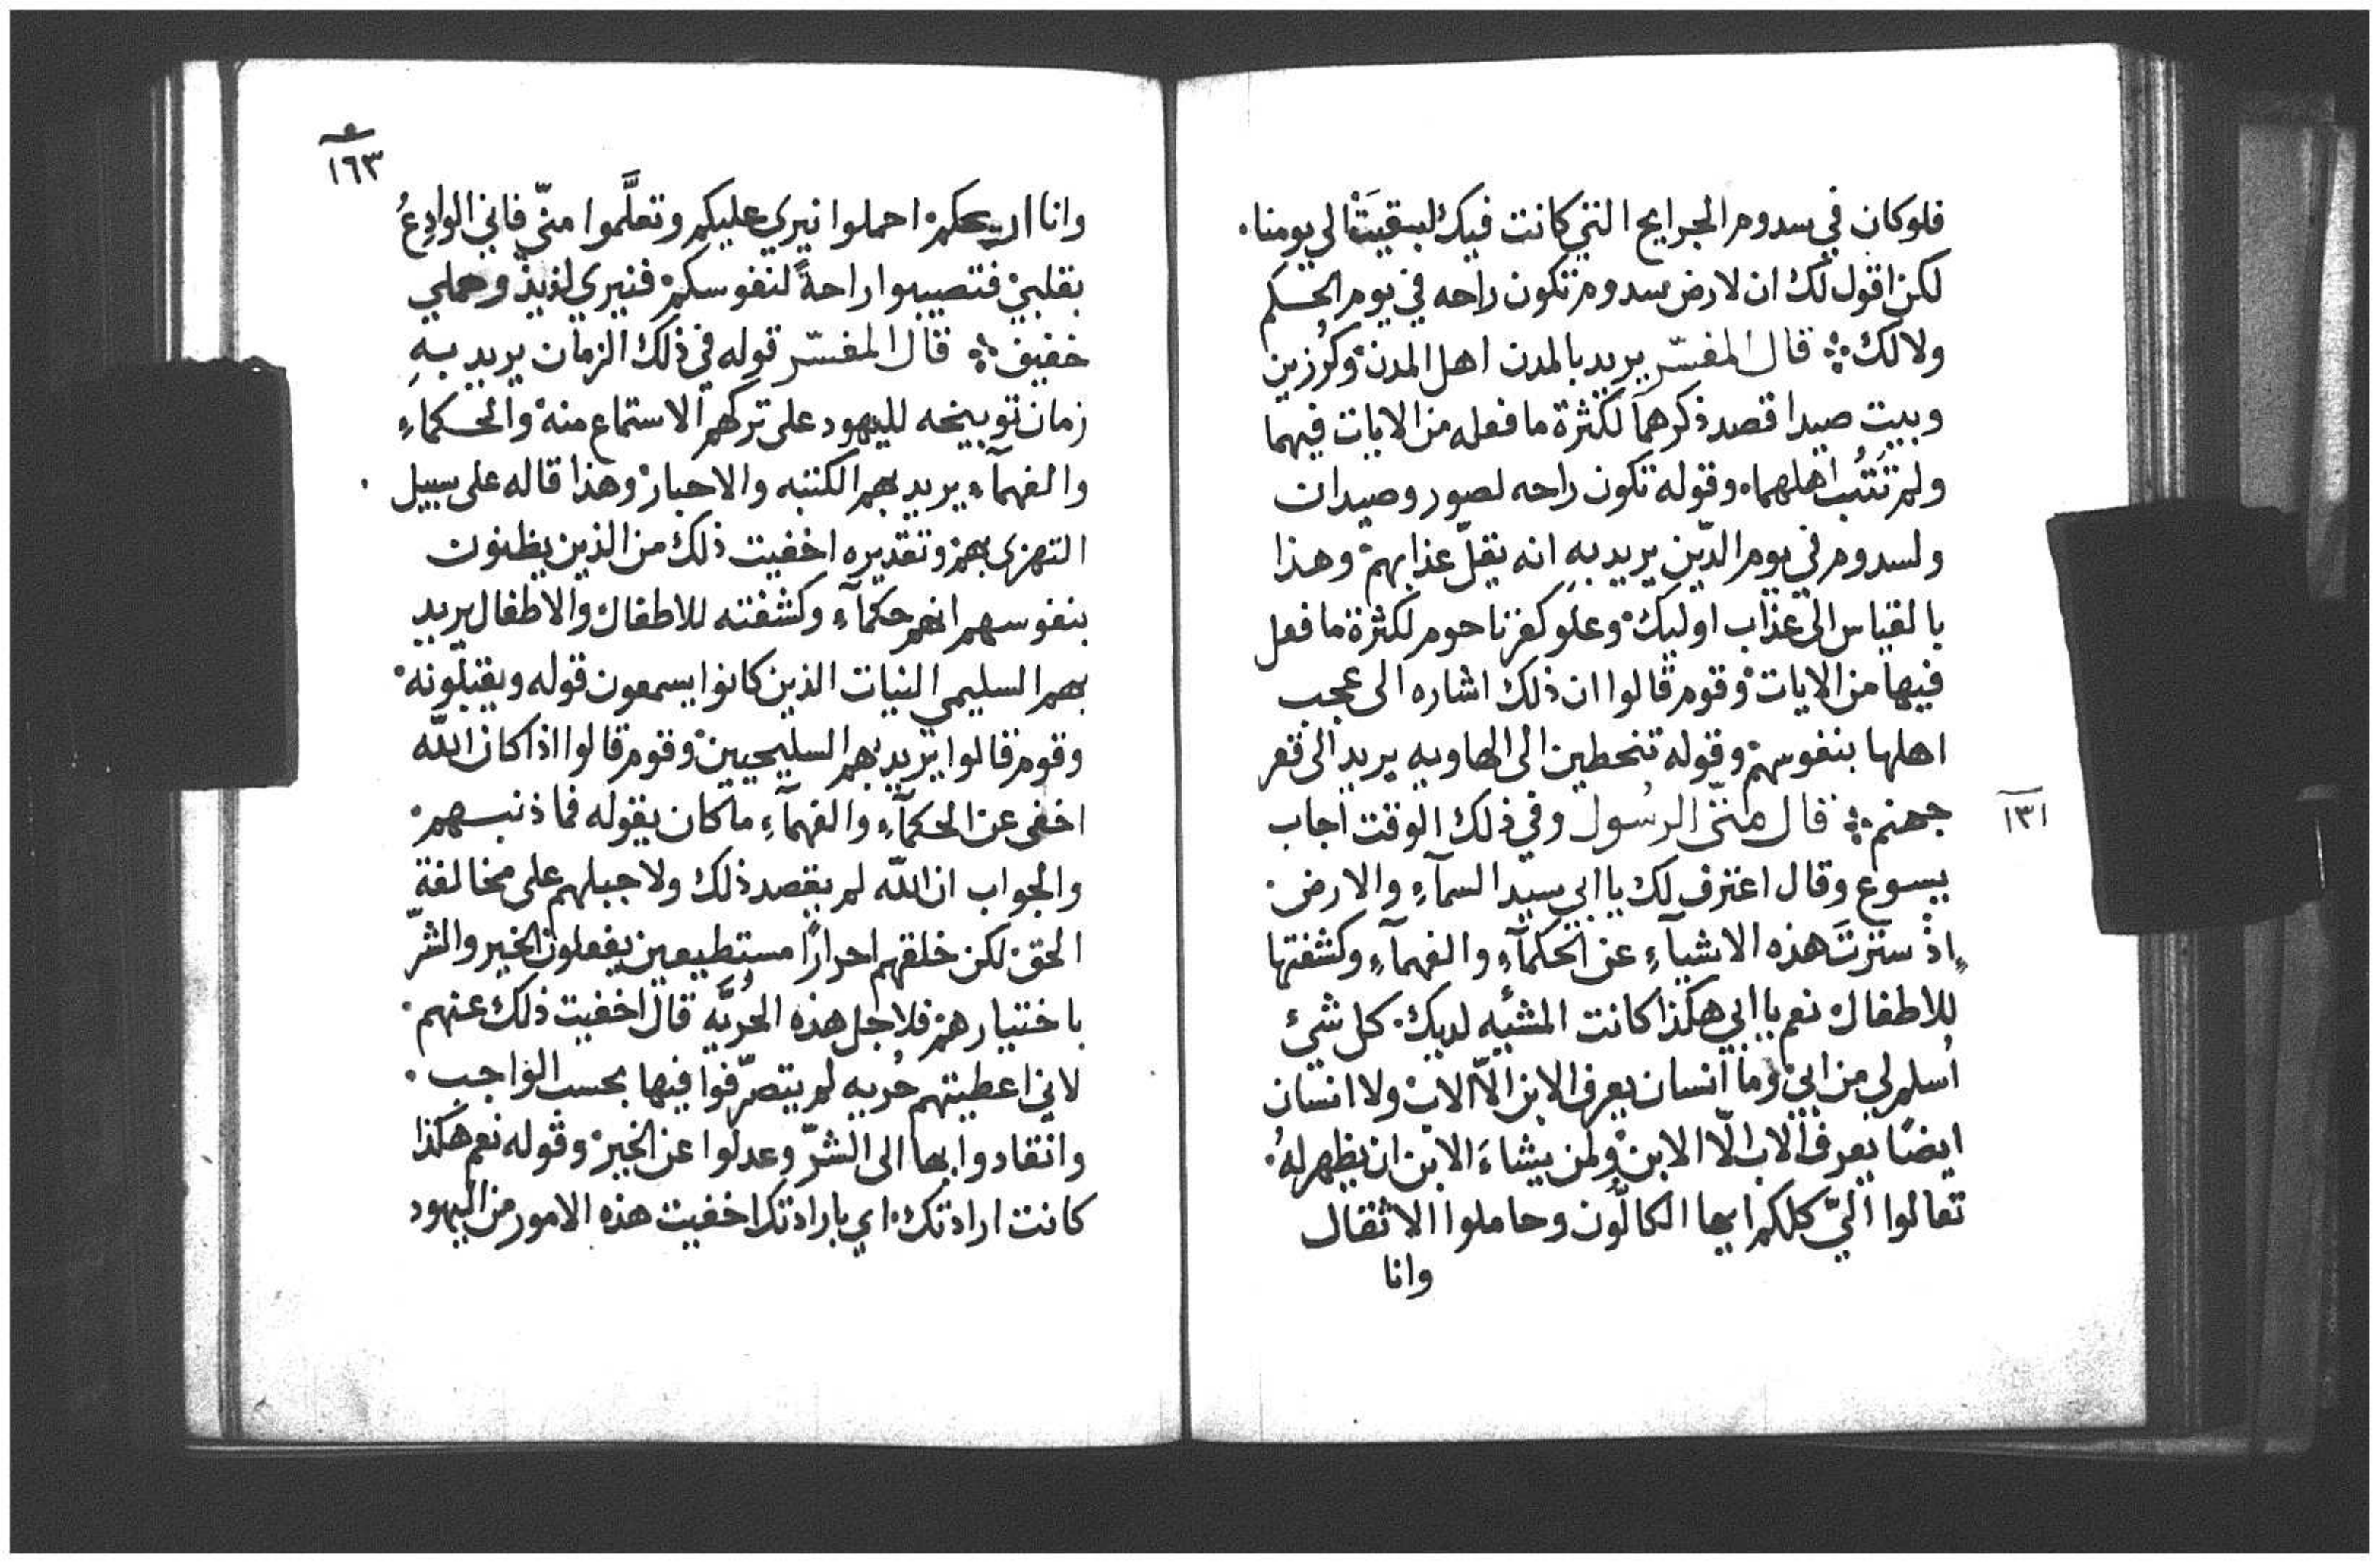 فلو كان في سدوم الجرايح التي كانت فيك لبقيَتْ الى يومنا.
لكن اقول لك ان لارض سدوم تكون راحه في يوم الحكم
ولا لك ܀ قال المفسّر يريد بالمدن اهل المدن وكُرزين
وبيت صيدا قصد ذكرهما لكثرة ما فعله من الايات فيهما
ولم تَتُب اهلهما. وقوله تكون راحه لصور وصيدان
ولسدوم في يوم الدّين يريد بهِ انه يقلّ عذابهم وهذا
بالقياس الى عذاب اوليك. وعلو كفرناحوم لكثرة ما فعل
فيها من الايات. وقوم قالوا ان ذلك اشاره الى عجب
اهلها بنفوسهم وقوله تنحطين الى الهاويه يريد الى قعر
جهنم ܀ قال متى الرسول وفي ذلك الوقت اجاب
١٣١
يسوع وقال اعترف لك يا ابي سيد السمآءِ والارض.
اذْ سترتَ هذه الاشيآءِ عن الحكمآءِ والفهمآءِ وكشفتها
للاطفال نعم يا ابي هكذا كانت المشيّه لديك. كل شئ
اُسلم لي من ابي وما انسان يعرف الابن الّا الاب ولا انسان
ايضًا يعرف الاب الّا الابن ولمن يشاءَ الابن ان يظهر لهُ.
تعالوا اليّ كلكم ايها الكالّون وحاملوا الاثقال
وانا
١٦٣
وانا اريحكم احملوا نيري عليكم وتعلَّموا منّي فاني الوادِعُ
بقلبي فتصيبوا راحةً لنفوسكم فنيري لذيذ وحملي
خفيف ܀ قال المفسّر قوله في ذلك الزمان يريد بهِ
زمان توبيخه لليهود على تركهم الاستماع منه والحكماءِ
والفهمآءِ يريد بهم الكتبه والاحبار وهذا قاله على سبيل
التهزى بهم وتقديره اخفيت ذلك من الذين يظنون
بنفوسهم انهم حكمآءِ وكشفته للاطفال والاطفال يريد
بهم السليمي النيات الذين كانوا يسمعون قوله ويقبلونه.
وقوم قالوا يريد بهم السليحيين وقوم قالوا اذا كان اللّه
اخفى عن الحكمآءِ والفهمآءِ ما كان يقوله فما ذنبهم.
والجواب ان اللّه لم يقصد ذلك ولا جبلهم على مخالفة
الحق لكن خلقهم احرارًا مستطيعين يفعلون الخير والشرّ
باختيارهم فلاجل هذه الحُريَّه قال اخفيت ذلك عنهم.
لاني اعطيتهم حُريه لم يتصرّفوا فيها بحسب الواجب.
وانقادوا بها الى الشرّ وعدلوا عن الخير وقوله نعم هكذا
كانت ارادتك. اي بارادتك اخفيت هذه الامور من اليهود